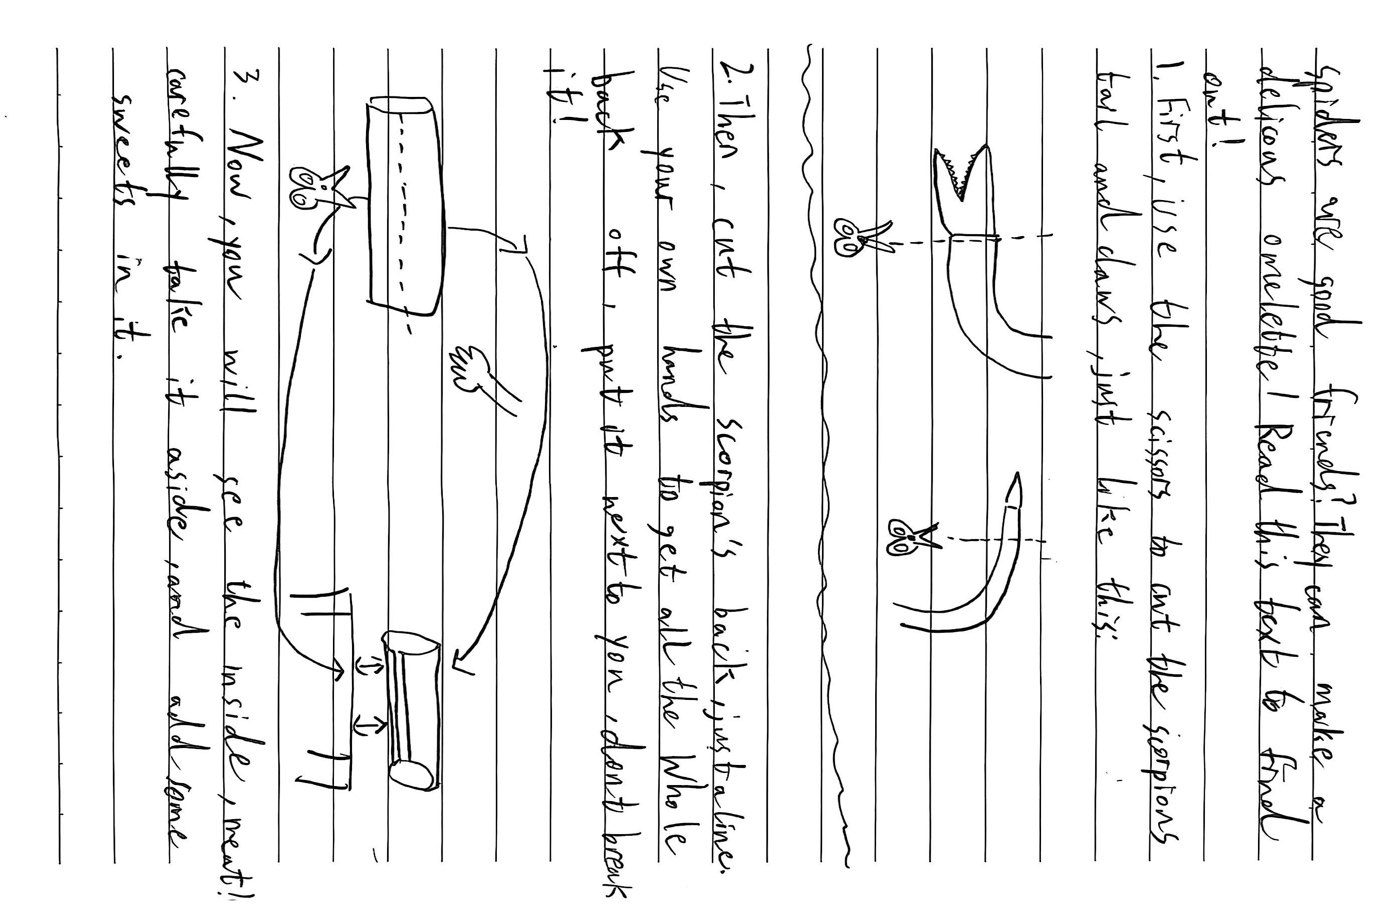 spiders we good friends? They can make a
delicous omelette! Read this text to find
out!
1. First, use the scissors to cut the scorpions
tail and claws, just like this:
2. Then, cut the scorpion's back, just a line.
Use your own hands to get all the whole
back off, put it next to you, dont break
it!
3. Now, you will see the inside, meat!
carefully take it aside, and add some
sweets in it.